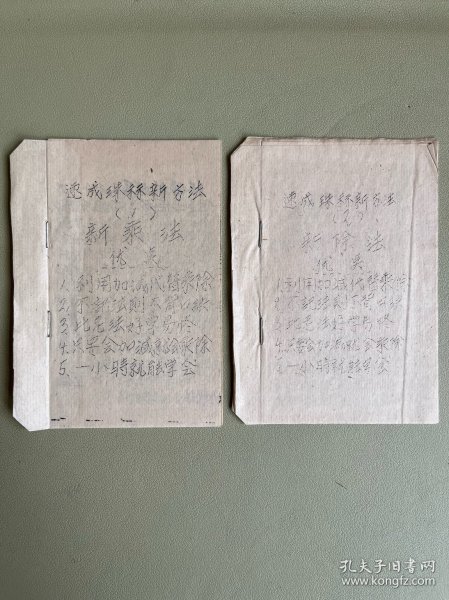 速成珠祘新方法
(1)
新乘法
优点
1.利用加减代替乘除
2.不記法則不背口诀
3.比老法好学易懂
4.只要会加减就会乘除
5.一小時就能学会
速成珠祘新方法
(2)
新除法
优点
1.利用加减代替乘除
2.不記法則不背口诀
3.比老法好学易懂
4.只要会加减就会乘除
5.一小時就能学会
孔夫子旧书网
www.kongfz.com